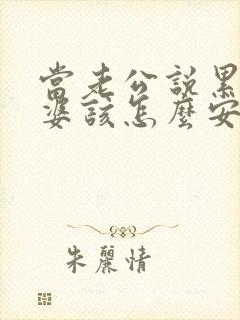 當老公說累
婆該怎麼安
朱麗情